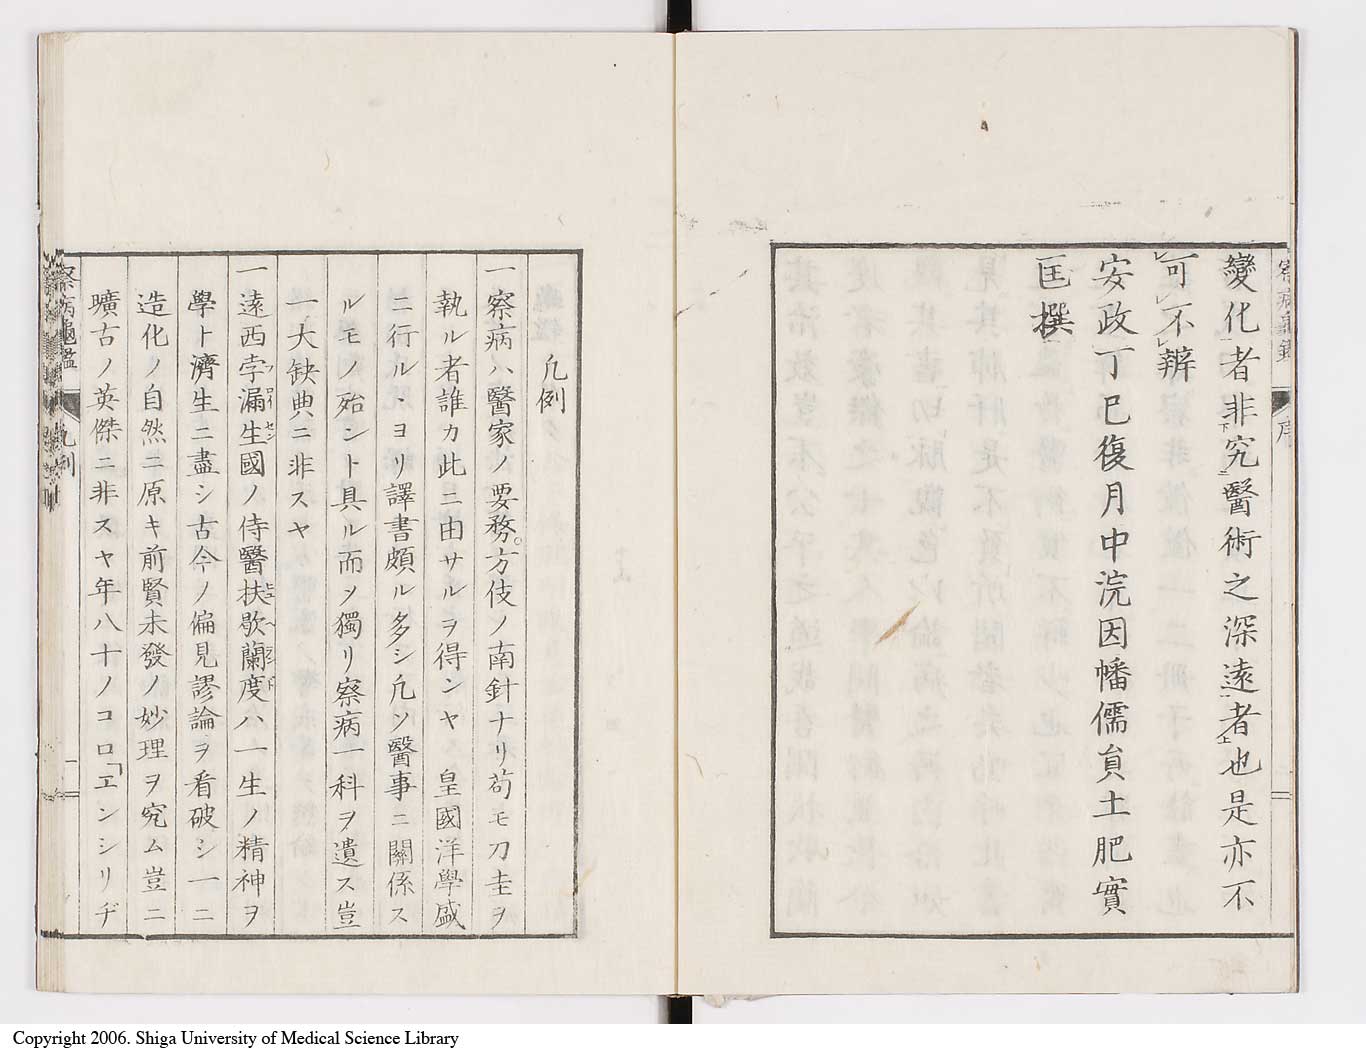 變化者非究醫術之深遠者也是亦不
可不辨
安政丁巳復月中浣因幡儒員土肥實
匡撰
序
凡例
一察病ハ醫家ノ要務。方伎ノ南針ナリ苟モ刀圭ヲ
執ル者誰カ此ニ由サルヲ得ンヤ 皇國洋學盛
ニ行ル丶ヨリ譯書頗ル多シ凡ソ醫事ニ關係ス
ルモノ殆ント具ル而ソ獨リ察病一科ヲ遺ス豈
一大缺典ニ非スヤ
一遠西孛漏生國ノ侍醫扶歇蘭度ハ一生ノ精神ヲ
學ト濟生ニ盡シ古今ノ偏見謬論ヲ看破シ一ニ
造化ノ自然ニ原キ前賢未發ノ妙理ヲ究ム豈ニ
曠古ノ英傑ニ非スヤ年八十ノコロ「エンシリヂ
察病龜鑑 凡例 一
Copyright 2006. Shiga University of Medical Science Library